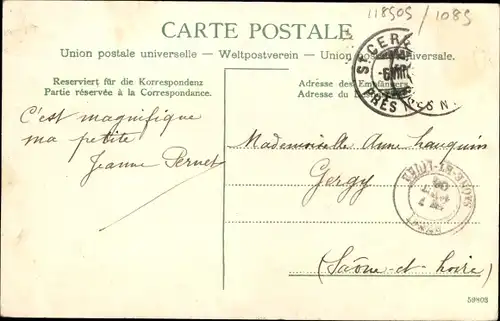 118505 / 1085
CARTE POSTALE
Union postale universelle — Weltpostverein — Union postale universale.
Reserviert für die Korrespondenz
Partie réservée à la Correspondance.
Adresse des Empfängers
Adresse du
ST. CERGUES
PRÈS NYON
C'est magnifique
ma petite
Jeanne Pernet
Mademoiselle Anne Lauquin
Gergy
(Saône-et-Loire)
SAONE-ET-LOIRE
59803